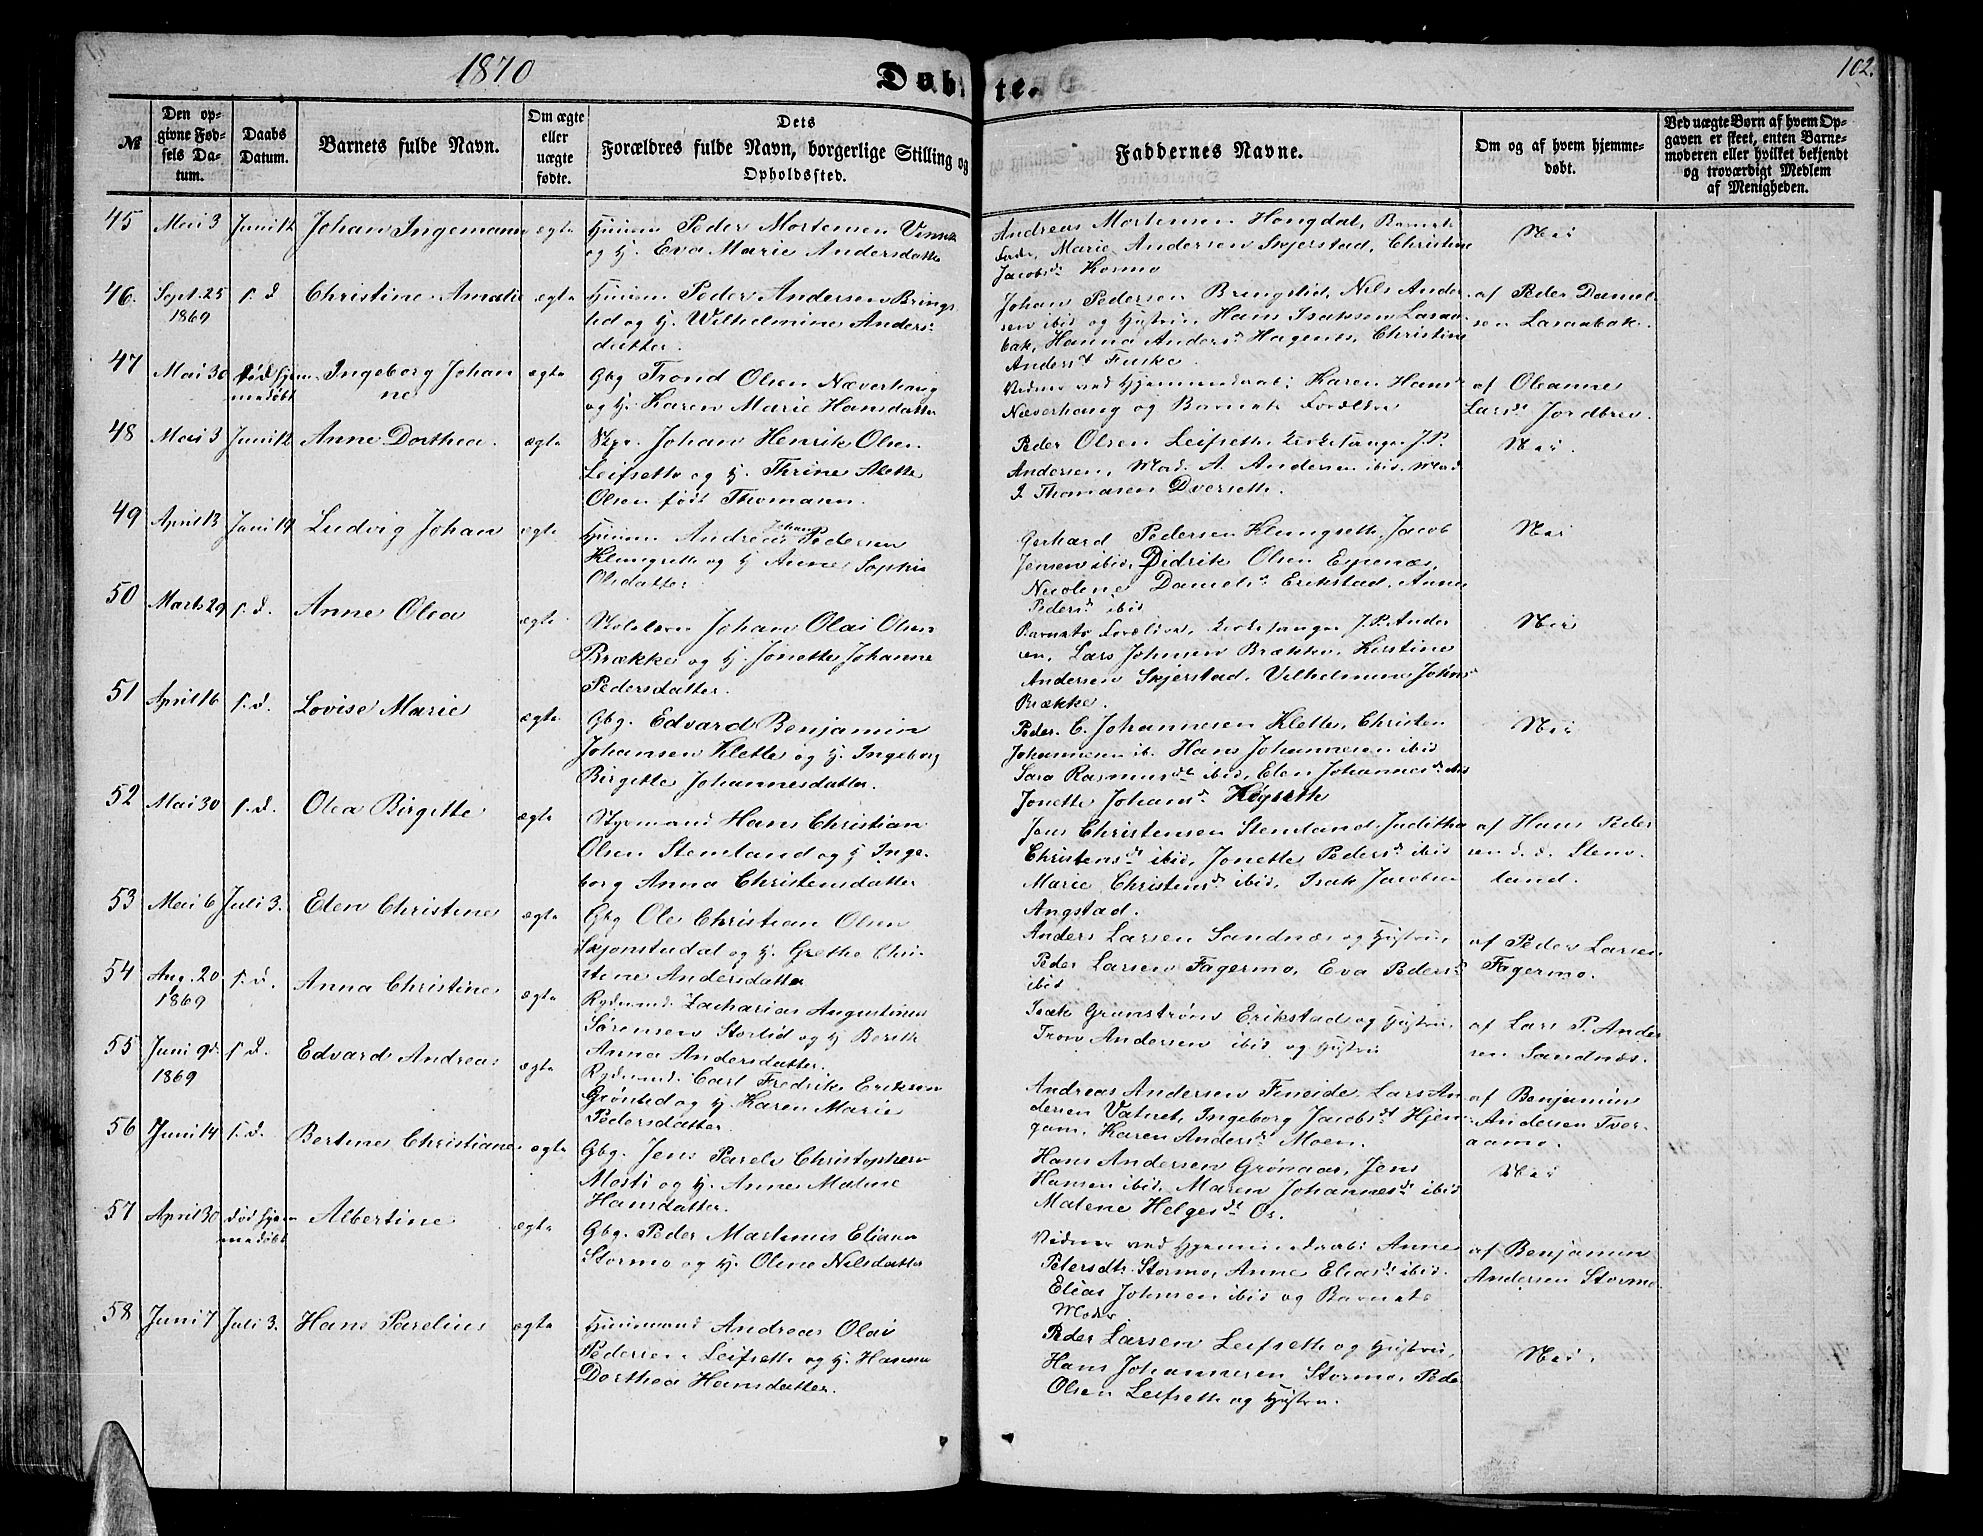 1870
Døbte.
102.
№
Den opgivne Fødsels Datum.
Daabs Datum.
Barnets fulde Navn.
Om ægte eller uægte fødte.
Dets Forældres fulde Navn, borgerlige Stilling og Opholdssted.
Faddernes Navne.
Om og af hvem hjemmedøbt.
Ved uægte Børn af hvem Opgaven er skeet, enten Barnemoderen eller hvilket bekjendt og troværdigt Medlem af Menigheden.
45 Mai 3 Juni 12 Johan Ingemann ægte
Huusm Peder Mortensen
og H. Eva Marie Andersdatter
Andreas Mortensen Hongdal, Barnets
Fader, Marie Andersen Skjerstad, Christine
Jacobsd. Kosmo
Nei
46. Sept. 25 1869 s. d. Christine Amalie ægte
Huusm Peder Andersen Brings
tad og H. Wilhelmine Anders
datter.
Johan Pedersen Bringstad, Nils Ander
sen ibid og Hustru, Hans Isaksen Laraa
bak, Hanna Andersd.
Andersd. Fuske.
af Peder Daniel
sen Laraabak.
47 Mai 30 død hjem
medøbt
Ingeborg Johan
ne
ægte
Gbg Trond Olsen Næverhaug
og H. Karen Marie Hansdatter
Vidner ved Hjemmedaab: Karen Hansd.
Næverhaug og Barnets Forældre
af Oleanne
Larsd. Jordbrev.
48 Mai 3 Juni 12 Anne Dorthea. ægte
Johan Henrik Olsen
Leifsette og H. Thrine Alette
Olsen født Thomassen.
Peder Olsen Leifsette, Kirkesanger J. P.
Andersen, Mad. A. Andersen ibid, Mad
J. Thomasen Dversette.
Nei.
49 April 13 Juni 14 Ludvig Johan ægte
Huusm Andreas Johan Pedersen
Klungsette og H Anne Sophie
Olsdatter.
Gerhard Pedersen Klungsette, Jacob
Jensen ibid, Didrik Olsen Espenæs,
Nicoline Daniels d. Erikstad, Anne
Pedersd ibid
Nei
50 Marts 29 s. d. Anne Olea ægte
Skolelærer Johan Olai Olsen
Brække og H. Jonette Johanne
Pedersdatter.
Barnets Forældre, Kirkesanger J. P. Ander
sen, Lars Johnsen Brække, Kirstine
Andersen Skjerstad, Vilhelmine Johns
Brække.
Nei
51 April 16 s. d. Lovise Marie ægte
Gbg. Edvard Benjamin
Johansen Klette og H. Ingeborg
Birgitte Johannesdatter.
Peder C. Johannesen Klette, Christen
Johannesen ib. Hans Johannesen ibid
Sara Rasmusdt ibid, Elen Johannesd. ibid
Jonette Johansd. Høgseth
Nei
52 Mai 30 s. d. Olea Birgitte ægte
Styrmand Hans Christian
Olsen Stemland og H Inge
borg Anna Christensdatter
Jens Christensen Stemland, Juditha
Christensdt ibid, Jonette Pedersd ibid
Marie Christensd. ibid, Isak Jacobsen
Angstad.
af Hans Peder
sen d. d. Stem
land.
53 Mai 6 Juli 3. Elen Christine ægte
Gbg Ole Christian Olsen
Skjonstudal og H. Grethe Chri
stine Andersdatter
Anders Larsen Sandnæs og Hustru
Peder Larsen Fagermo, Eva Pedersd
ibid
af Peder Larsen
Fagermo.
54 Aug. 20 1869 s. d. Anna Christine ægte
Rydmand Zacharias Augustinus
Sørensen Storlid og H Berith
Anna Andersdatter.
Isak Grønstrøm Erikstad og Hustru,
Tron Andersen ibid og Hustru
af Lars P. Ander
sen Sandnæs.
55 Juni 9d. 1869 s. d. Edvard Andreas ægte
Rydmand Carl Fredrik Eriksen
Grønlid og H Karen Marie
Pedersdatter.
Andreas Andersen Fineide, Lars An
dersen Vatnet, Ingeborg Jacobsdt Hjem
gam, Karen Andersd. Moen.
af Benjamin
Andersen Tver
aamo.
56 Juni 14 s. d. Bertine Christiane ægte
Gbg. Jens Parelv Christophers
Mosti og H. Anne Malene
Hansdatter.
Hans Andersen Grønaas, Jens
Hansen ibid, Maren Johannesd. ibid
Malene Helgesdt Os.
Nei
57 April 30 død hjem
medøbt
Albertine ægte
Gbg. Peder Martinus Eliasen
Stormo og H. Oline Nilsdatter
Vidner ved Hjemmedaab: Anne
Petersdt. Stormo, Anne Eliasdt ibid.
Elias Johnsen ibid og Barnets
Moder
af Benjamin
Andersen Stormo.
58 Juni 7 Juli 3. Hans Parelius ægte
Huusmand Andreas Olai
Pedersen Leifsette og H. Hanna
Dorthea Hansdatter.
Peder Larsen Leifsette og Hustru,
Hans Johannesen Stormo, Peder
Olsen Leifsette og Hustru.
Nei.